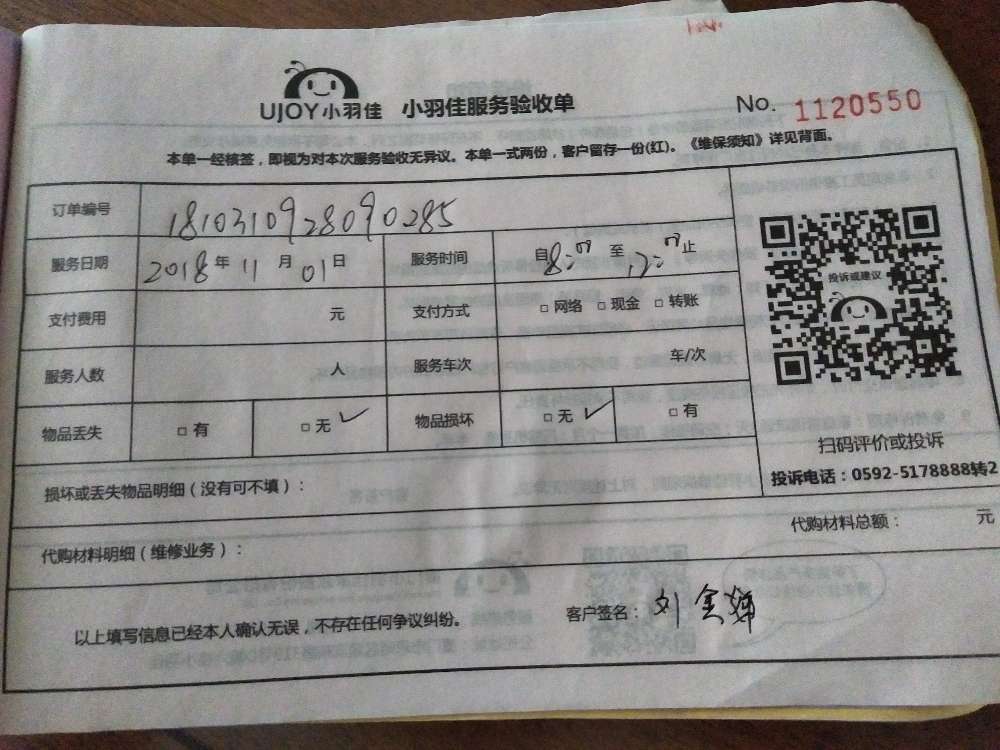 UJOY小羽佳 小羽佳服务验收单 No. 1120550
本单一经核签，即视为对本次服务验收无异议。本单一式两份，客户留存一份(红)。《维保须知》详见背面。
订单编号 1810310928090285
服务日期 2018年11月01日 服务时间 自8:00至12:00止
支付费用 元 支付方式 □网络 □现金 □转账
服务人数 人 服务车次 车/次
物品丢失 □有 □无✓ 物品损坏 □无✓ □有
投诉或建议
扫码评价或投诉
投诉电话：0592-5178888转2
损坏或丢失物品明细（没有可不填）：
代购材料明细（维修业务）： 代购材料总额： 元
以上填写信息已经本人确认无误，不存在任何争议纠纷。 客户签名：刘金娣